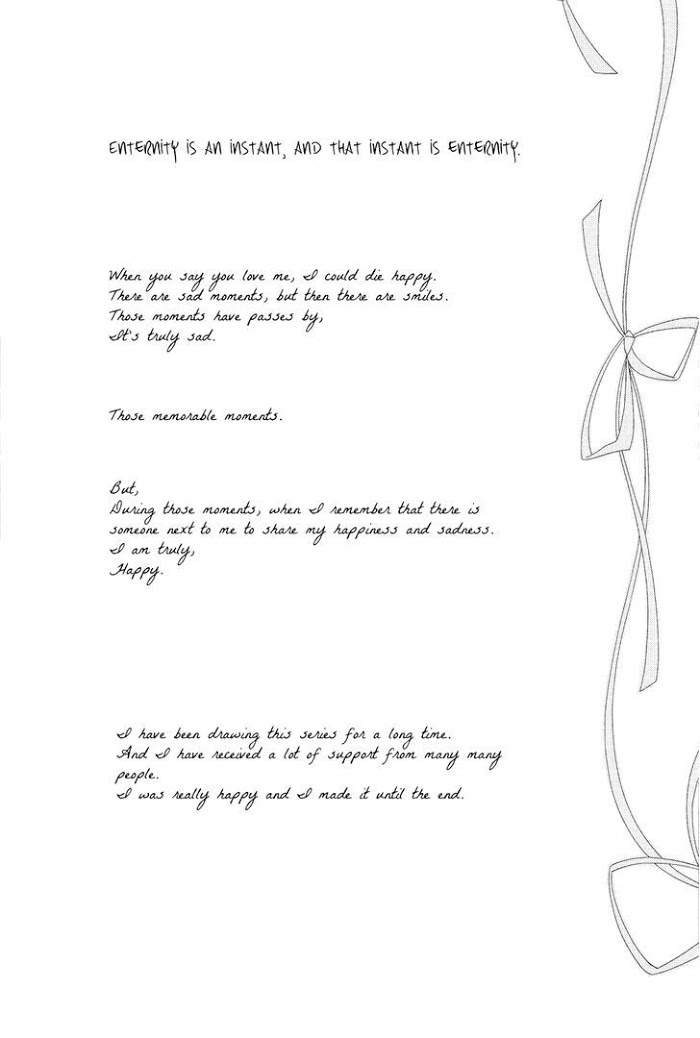 ENTERNITY IS AN INSTANT, AND THAT INSTANT IS ENTERNITY.
When you say you love me, I could die happy.
There are sad moments, but then there are smiles.
Those moments have passes by,
It's truly sad.
Those memorable moments.
But,
During those moments, when I remember that there is
someone next to me to share my happiness and sadness.
I am truly,
Happy.
I have been drawing this series for a long time.
And I have received a lot of support from many many
people.
I was really happy and I made it until the end.